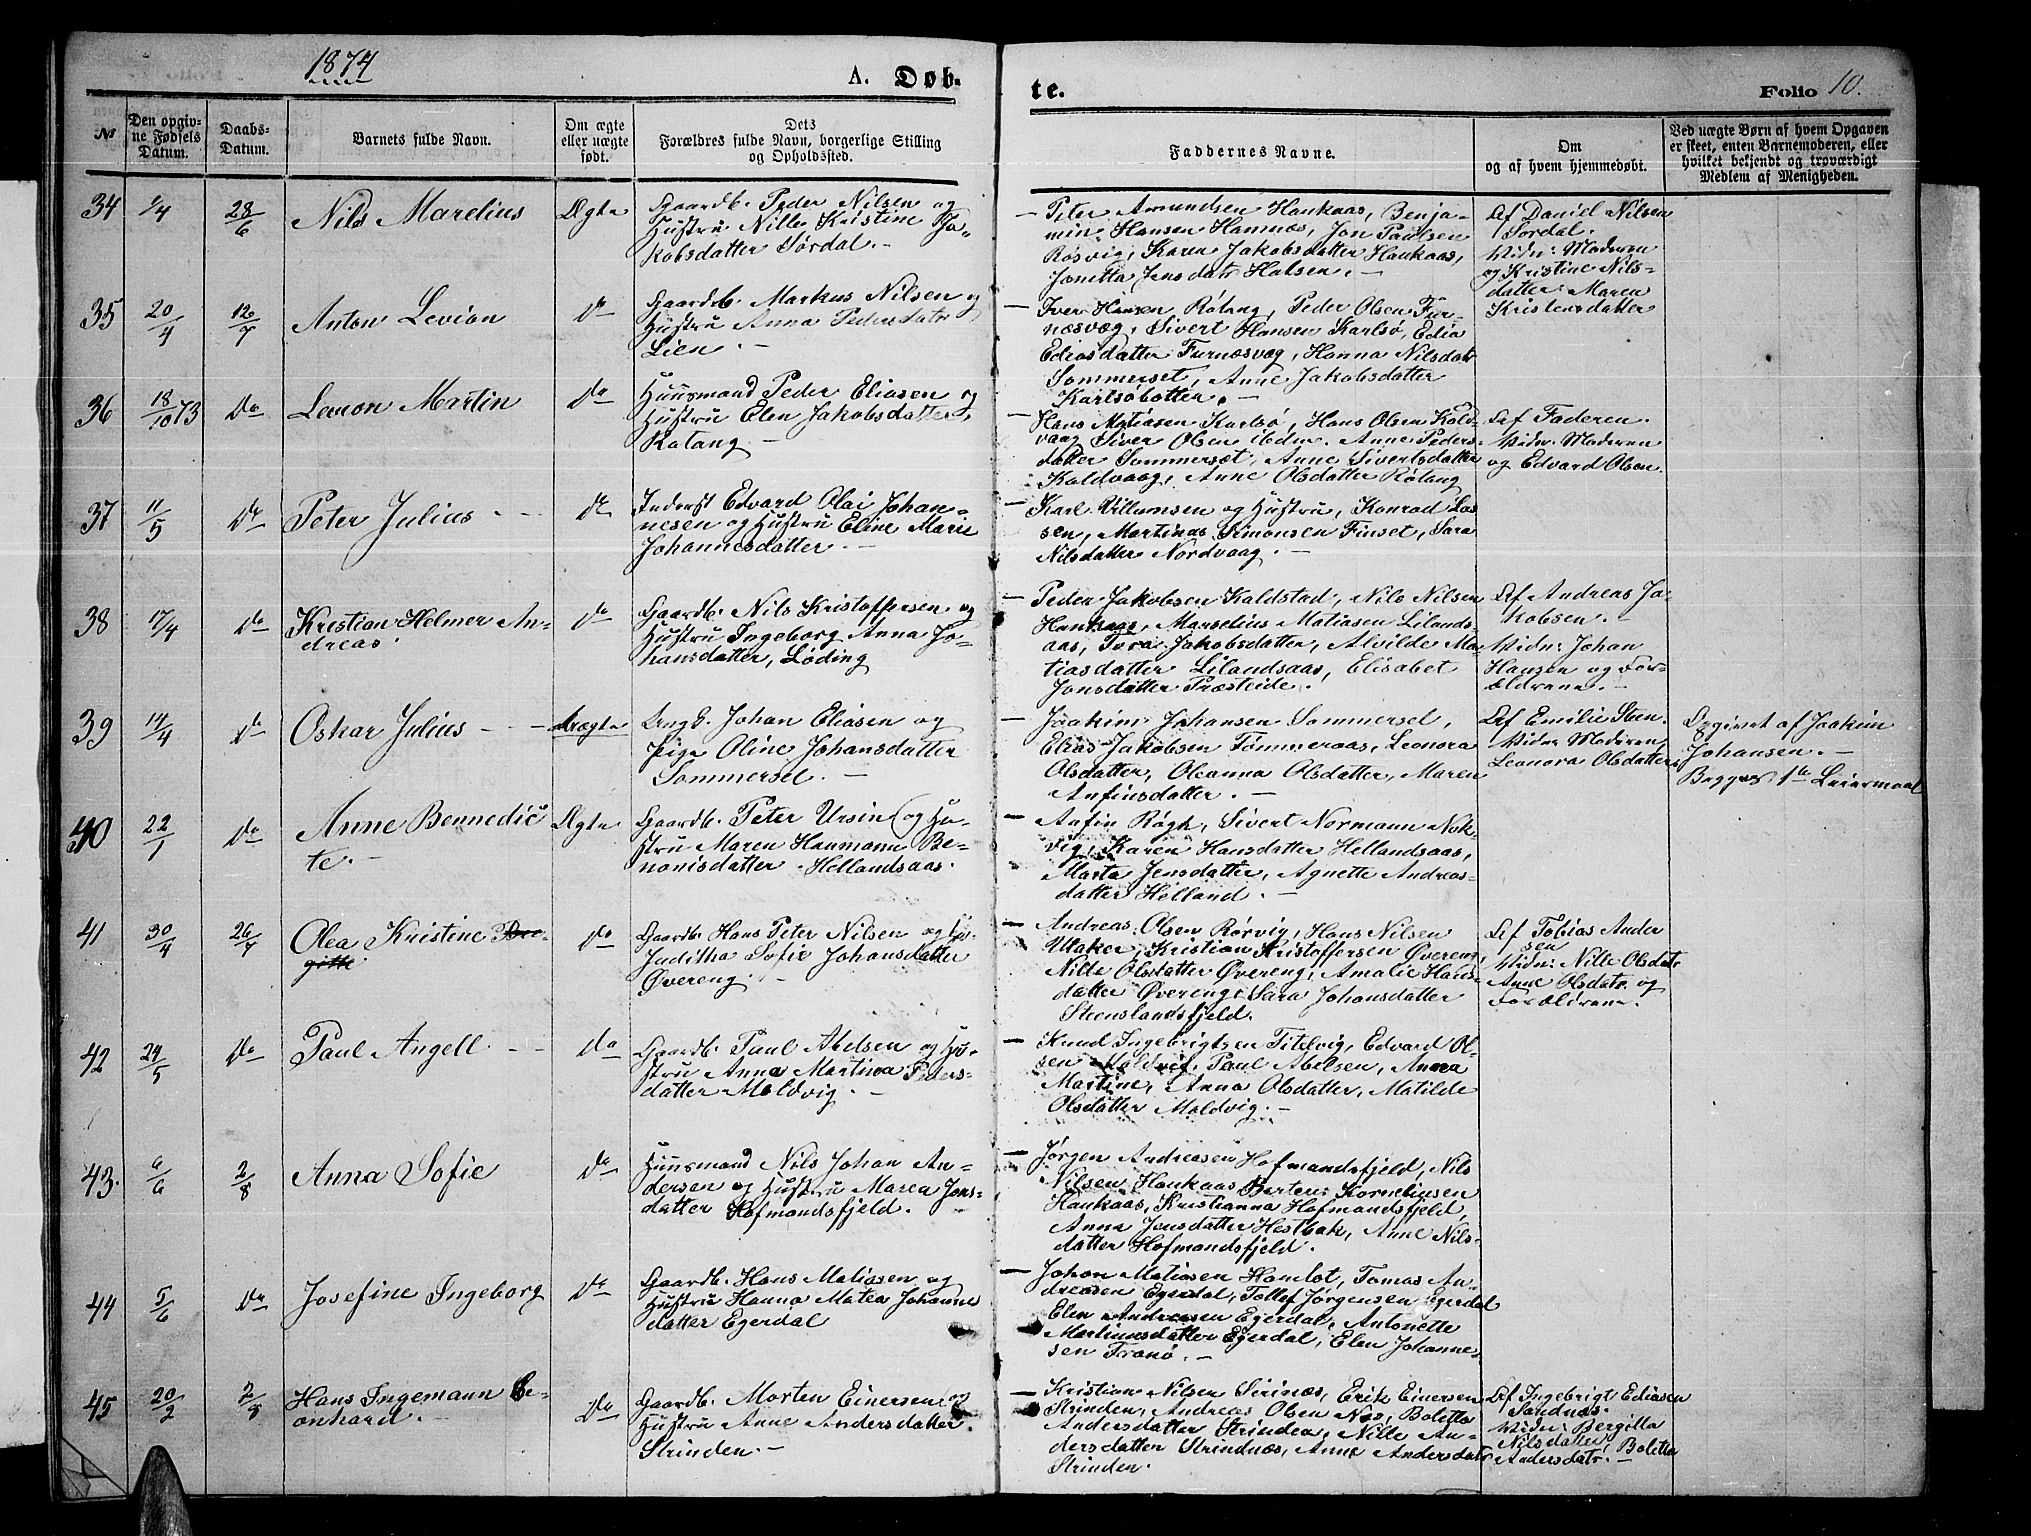 1874
A. Døb-
te.
Folio 10.
No
Den opgiv-
ne Fødsels
Datum.
Daabs-
Datum.
Barnets fulde Navn.
Om ægte
eller uægte
født.
Dets
Forældres fulde Navn, borgerlige Stilling
og Opholdssted.
Faddernes Navne.
Om
og af hvem hjemmedøbt.
Ved uægte Børn af hvem Opgaven
er skeet, enten Barnemoderen, eller
hvilket bekjendt og troværdigt
Medlem af Menigheden.
34
/4
28/6
Nils Marelius
Ægte
Gaardb. Peder Nilsen og
Hustru Nille Kristine Ja-
kobsdatter Sørdal. -
- Peter Amundsen Haukaas, Benja-
min Hansen Hannæs, Jon Paulsen
Røsvig, Karen Jakobsdatter Haukaas,
Jonetta Jensdatr Halsen. -
Af Daniel Nilsen
Sørdal.
Vidn: Moderen
og Kristine Nils-
datter. Maren
Kristensdatter
35
20/4
12/7
Anton Levion
Do
Gaardb. Markus Nilsen og
Hustru Anna Pedersdatr
Lien. -
- Iver Hansen Røtang, Peder Olsen Fur-
næsvæg, Sivert Hansen Karlsø, Edia
Ediasdatter Furnæsvæg, Hanna Nilsdatr
Sommerset, Anne Jakobsdatter
Karlsøbotten. -
36
18/10 73
Do
Levion Martin
Do
Huusmand Peder Eliasen og
Hustru Elen Jakobsdatter,
Røtang -
- Hans Matiasen Karlsø, Hans Olsen Kald-
vaag Siver Olsen ibdm. Anne Peders-
datter Sommersæt, Anne Sivertsdatter
Kaldvaag, Anne Olsdatter Røtang
Af Faderen.
Vidn: Moderen
og Edvard Olsen.
37
11/5
Do
Peter Julius -
Do
Inderst Edvard Olai Johan-
nesen og Hustru Eline Marie
Johannesdatter. -
- Karl Villumsen og Hustru, Konrad Las-
sen, Martinus Simonsen Finset, Sara
Nilsdatter Nordvaag. -
38
17/4
Do
Kristian Helmer An-
dreas.
Do
Gaardb. Nils Kristoffersen og
Hustru Ingeborg Anna Jo-
hansdatter, Løding
- Peder Jakobsen Kaldstad, Nils Nilsen
Haukaas, Marselius Matiasen Lilands-
aas, Tora Jakobsdatter, Alvilde Ma-
tiasdatter Lilandsaas, Elisabet
Jonsdatter Præsteide.
Af Andreas Ja-
kobsen. -
Vidn: Johan
Hansen og For-
ældrene. -
39
14/4
Do
Oskar Julius -
Uægte
Ungk. Johan Eliasen og
Pige Oline Johansdatter
Sommersel. -
- Joakim Johansen Sommersel,
Elias Jakobsen Tømmeraas, Leonora
Olsdatter, Oleanna Olsdatter, Maren
Anfinsdatter. -
Af Emilie Steen.
Vidn: Moderen,
Leonora Olsdatter.
Opgivet af Joakim
Johansen. -
Begges 1te Leiermaal
40
22/1
Do
Anne Bennedic-
te. -
Ægte
Gaardb. Peter Ursin og Hu-
stru Maren Haumann Be-
nonisdatter Hellandsaas.
- Anfin Røgh, Sivert Normann Nok-
vig, Karen Hansdatter Hellandsaas,
Marta Jensdatter, Agnette Andreas-
datter Helland. -
41
30/4
26/7
Olea Kristine Bre-
gitte.
Do
Gaardb. Hans Peter Nilsen og Hu.
Juditha Sofie Johansdatter
Øvereng. -
- Andreas Olsen Rørvig, Hans Nilsen
Uttaker, Kristian Kristoffersen Øvereng,
Nille Olsdatter Øvereng, Amalie Hans-
datter Øvereng, Sara Johansdatter
Steenslandsfjeld.
Af Tobias Ander
sen
Vidn: Nille Olsdatr
Anne Olsdatr og
Forældrene.
42
24/5
Do
Paul Angell -
Do
Gaardb. Paul Abelsen og Hu-
stru Anna Martina Peders-
datter Moldvig. -
- Knud Ingebrigtsen Titelvig, Edvard Ol-
sen Moldvig, Paul Abelsen, Anna
Martine, Anna Olsdatter, Matilde
Olsdatter Moldvig. -
43.
6/6
2/8
Anna Sofie
Do
Huusmand Nils Johan An-
dersen og Hustru Marea Jons-
datter Hofmandsfjeld.
- Jørgen Andreasen Hofmandsfjeld, Nils
Nilsen Haukaas Berteus Korneliusen
Haukaas, Kristianna Hofmandsfjeld,
Anna Jensdatter Hestbak, Anne Nils-
datter Hofmandsfjeld.
44
5/6
Do
Josefine Ingeborg
Do
Gaardb. Hans Matiasen og
Hustru Hanna Matea Johanne
datter Egerdal
- Johan Matiasen Hamlot, Tomas An-
dreasen Egerdal, Tollef Jørgensen Egerdal
Elen Andreasen Egerdal, Antonette
Martinusdatter Egerdal, Elen Johanne-
sen Tranø. -
45
20/2
2/8
Hans Ingemann Le-
onhard. -
Do
Gaardb. Morten Einersen og
Hustru Anne Andersdatter
Strinden. -
- Kristian Nilsen Strinæs, Erik Einersen
Strinden, Andreas Olsen Næs, Boletta
Andersdatter Strinden, Nille An-
dersdatter Strindnæs, Anne Andersdatr
Strinden.
Af Ingebrigt Ediasen
Sandnæs.
Vidn: Bergilla
Nilsdatter, Boletta
Andersdatr. -